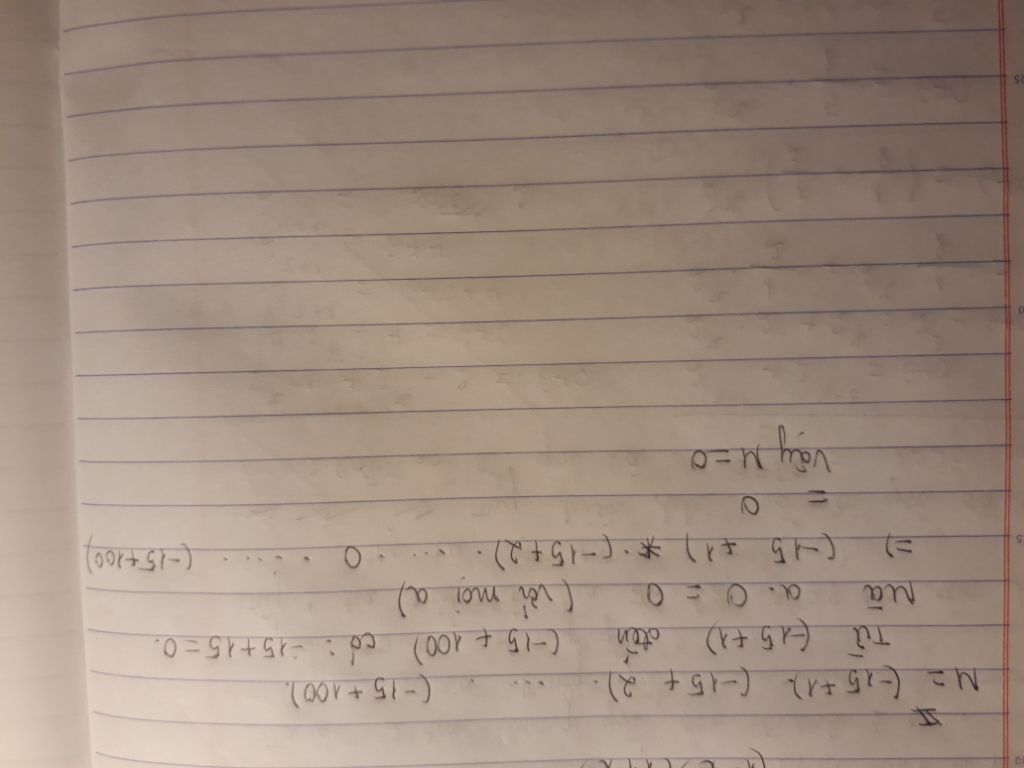 M = (-15+1). (-15+2). ... . (-15+100).
Từ (-15+1) đến (-15+100) có : -15+15=0.
Mà a. 0 = 0 (với mọi a)
=) (-15 +1) . (-15+2). ..... 0 . .... (-15+100)
= 0
Vậy M=0